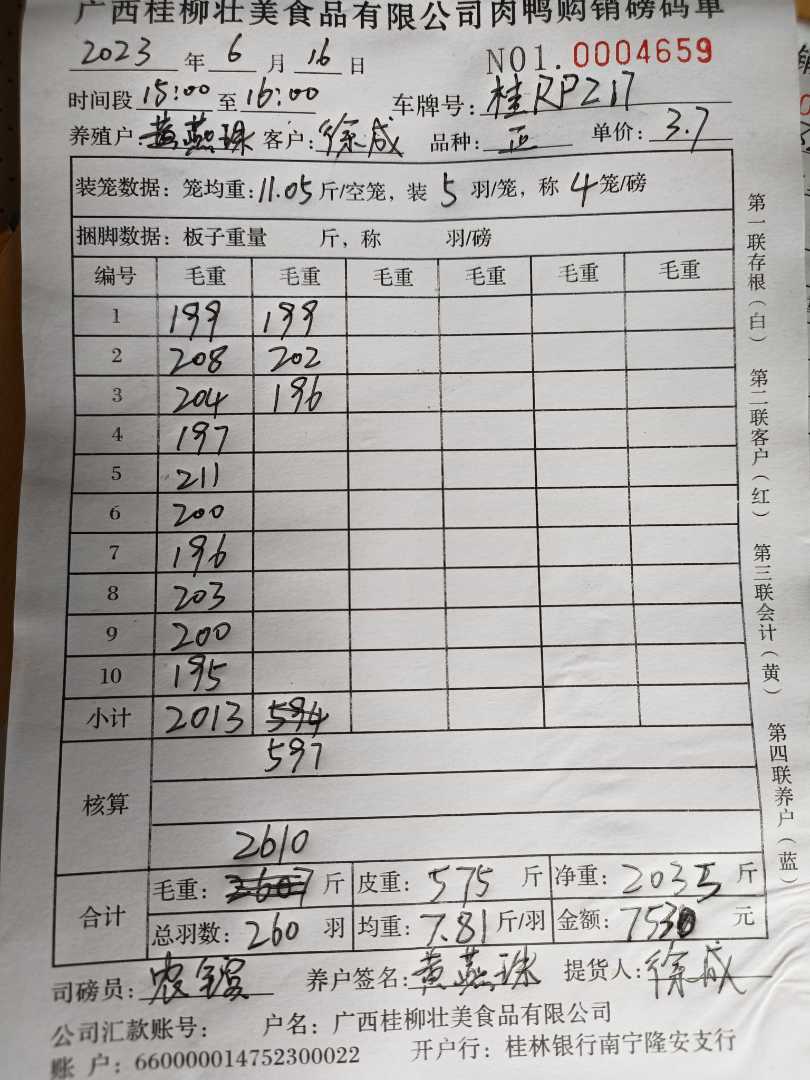 广西桂柳壮美食品有限公司肉鸭购销磅码单
2023 年 6 月 16 日 NO1.0004659
时间段 15:00 至 16:00 车牌号: 桂RPZ17
养殖户: 黄燕珠 客户: 徐成 品种: 正 单价: 3.7
装笼数据: 笼均重: 11.05 斤/空笼, 装 5 羽/笼, 称 4 笼/磅
捆脚数据: 板子重量 斤, 称 羽/磅
编号 毛重 毛重 毛重 毛重 毛重 毛重
1 199 199
2 208 202
3 204 196
4 197
5 211
6 200
7 196
8 203
9 200
10 195
小计 2013 594
597
核算
2610
合计 毛重: 2607 斤 皮重: 575 斤 净重: 2035 斤
总羽数: 260 羽 均重: 7.81 斤/羽 金额: 7530 元
司磅员: 养户签名: 黄燕珠 提货人: 徐成
公司汇款账号: 户名: 广西桂柳壮美食品有限公司
账 户: 660000014752300022 开户行: 桂林银行南宁隆安支行
第一联存根(白) 第二联客户(红) 第三联会计(黄) 第四联养户(蓝)